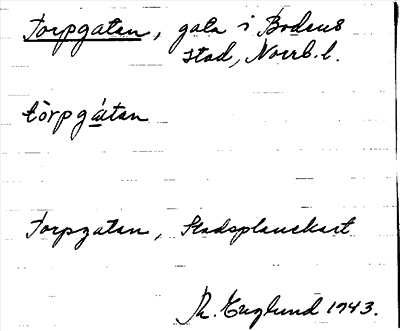 Torpgatan, gata i Bodens
stad, Norrb. l.
tòrpgátan
Torpgatan, Stadsplanekart
Th. Englund 1943.